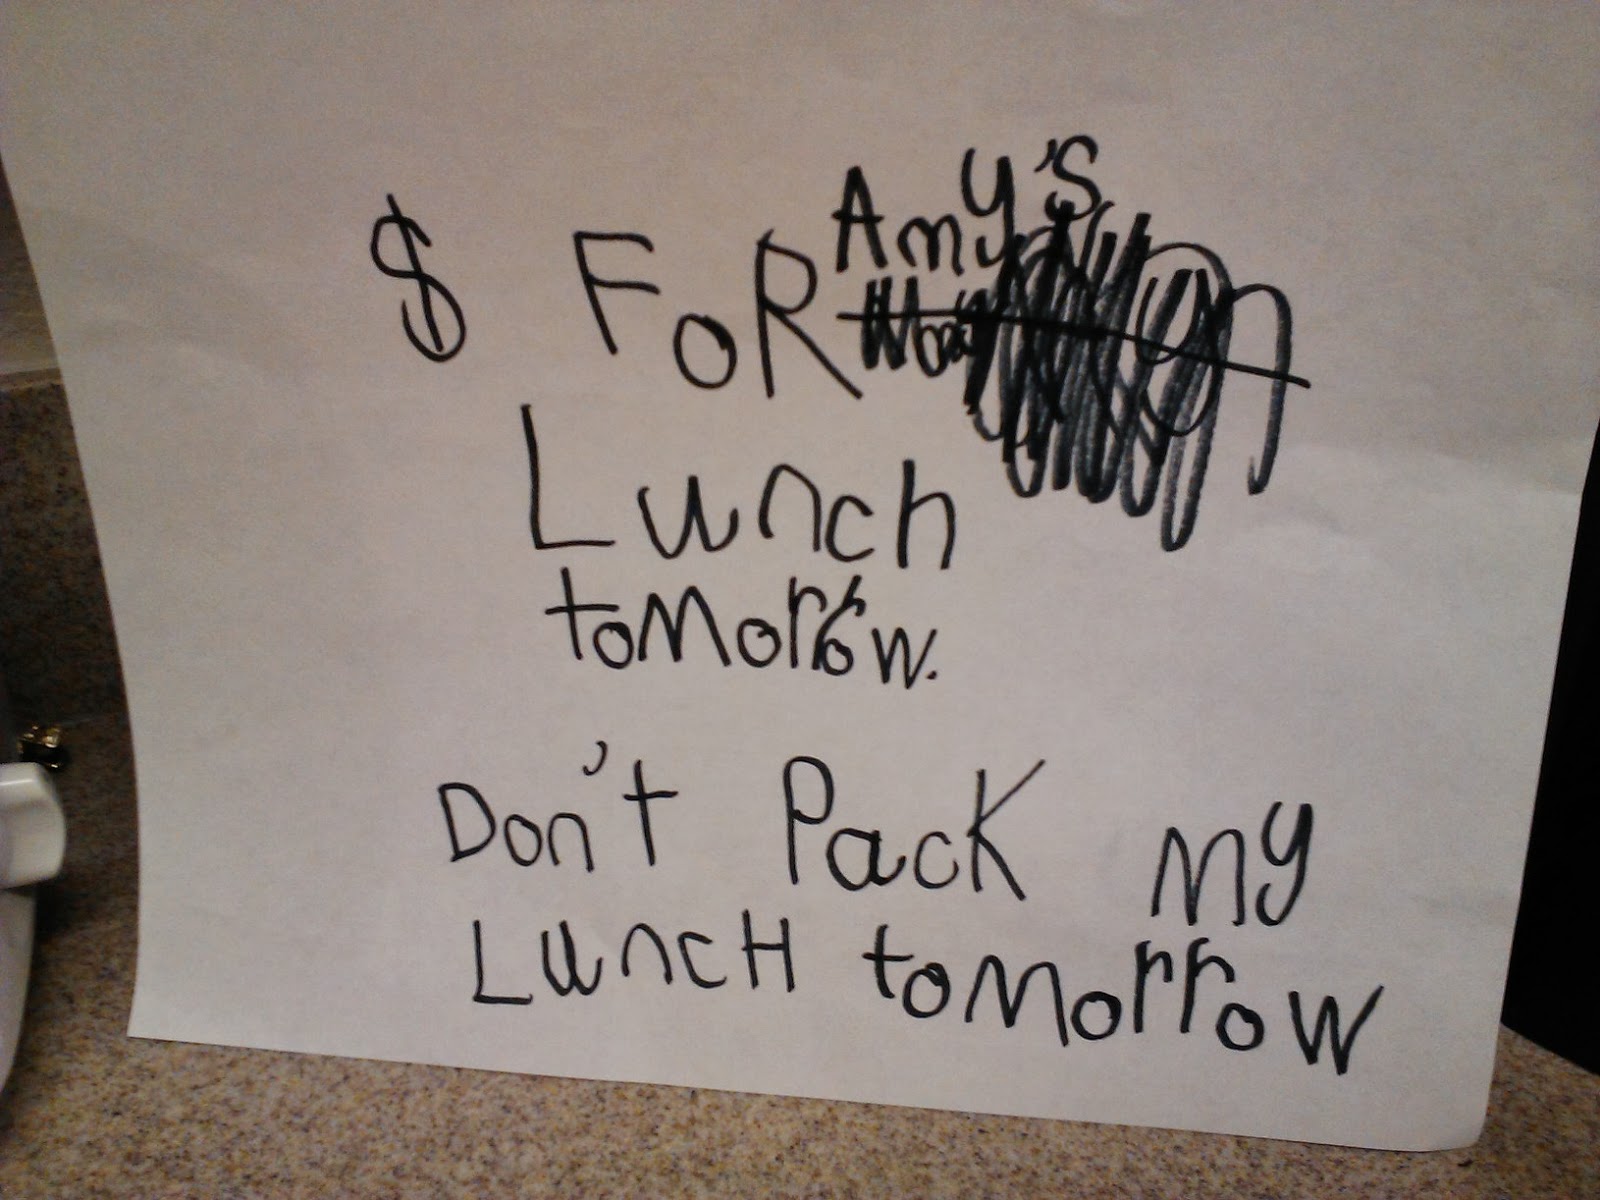 $ FOR Amy's
Lunch
tomorrow.
Don't Pack my
LuncH tomorrow